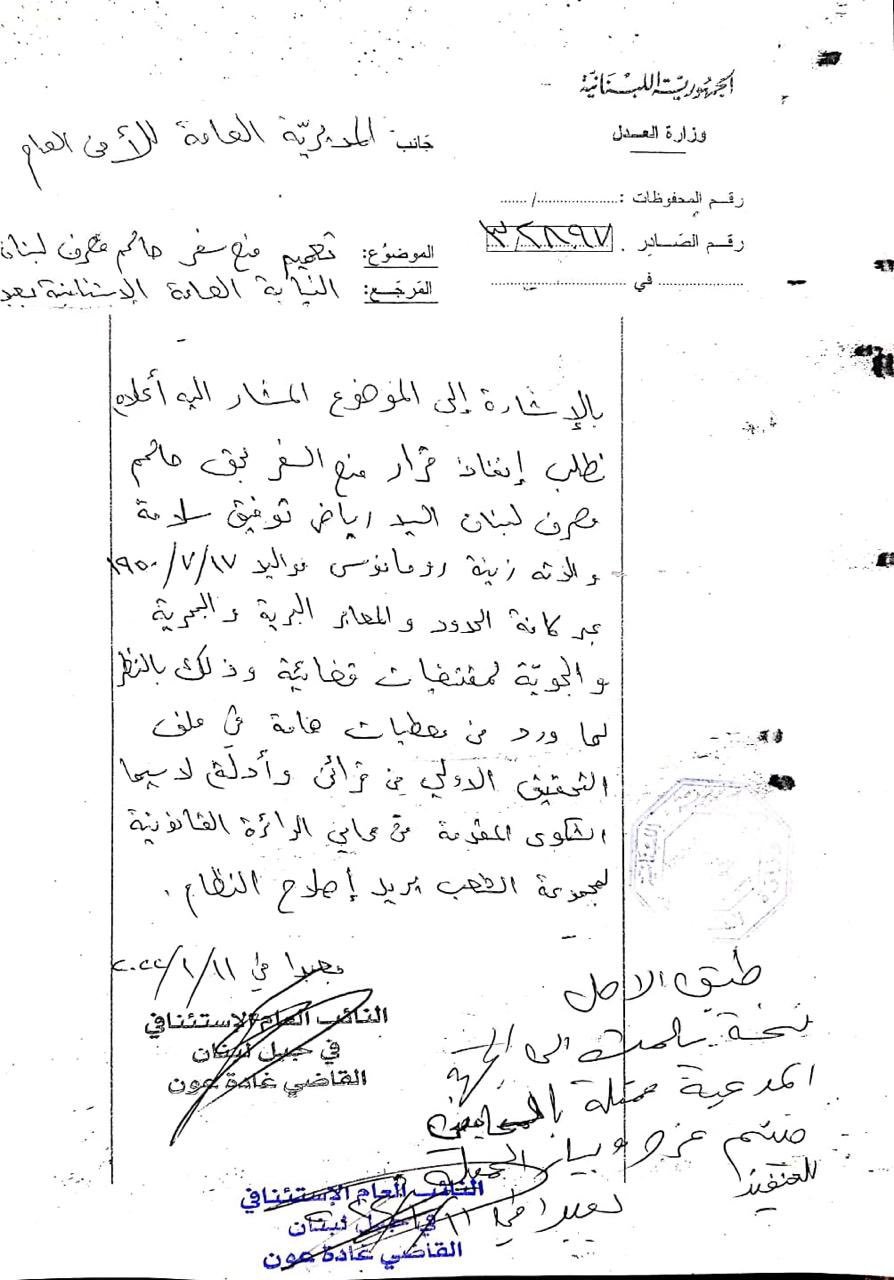 الجمهورية اللبنانية
وزارة العدل
جانب: المديرية العامة للأمن العام
رقم المحفوظات : ............/......
رقم الصادر . ٣٢٨٩٧
في
الموضوع: تعميم منع سفر حاكم مصرف لبنان
المرجع: النيابة العامة الاستئنافية بعبدا
بالإشارة إلى الموضوع المشار اليه أعلاه
نطلب إنفاذ قرار منع السفر بحق حاكم
مصرف لبنان السيد رياض توفيق سلامة
والدته زينة رومانوس مواليد ١٩٥٠/٧/١٧
عبر كافة الحدود والمعابر البرية والبحرية
والجويّة لمقتضيات قضائية وذلك بالنظر
لما ورد من معطيات هامة في ملف
التحقيق الاولي من قرائن وأدلّة لا سيما
الشكوى المقدمة من محامي الدائرة القانونية
لمجموعة الشعب يريد إصلاح النظام .
بعبدا في ٢٠٢٢/١/١١
النائب العام الإستئنافي
في جبل لبنان
القاضي غادة عون
طبق الاصل
نسخة سلمت الى الجهة
المدعية ممثلة بالمحاميين
هيثم عزو وبيار الجميل
للتنفيذ
بعبدا في ١١/
النائب العام الإستئنافي
في جبل لبنان
القاضي غادة عون